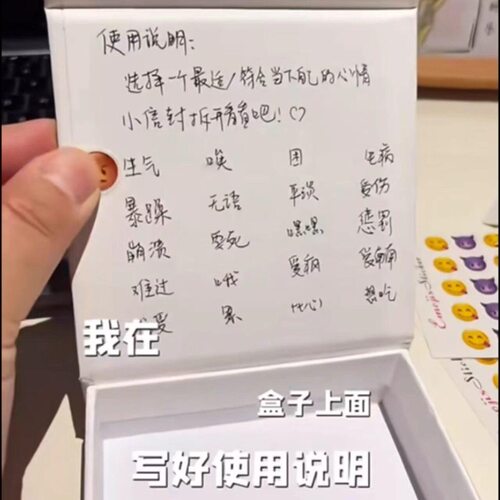 使用说明:
选择一个最适/符合当下自己的心情
小信封拆开看看吧!♡
生气 唉 困 生病
暴躁 无语 平淡 受伤
崩溃 要死 嘿嘿 惩罚
难过 哦 爱
累 开心 想吃
我在
盒子上面
写好使用说明